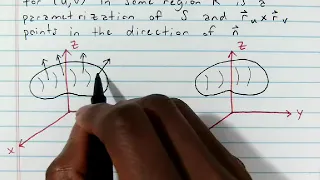 for (u,v) in some region R is a
parametrization of S and r⃗ᵤ × r⃗ᵥ
points in the direction of n⃗
z
z
x
y
x